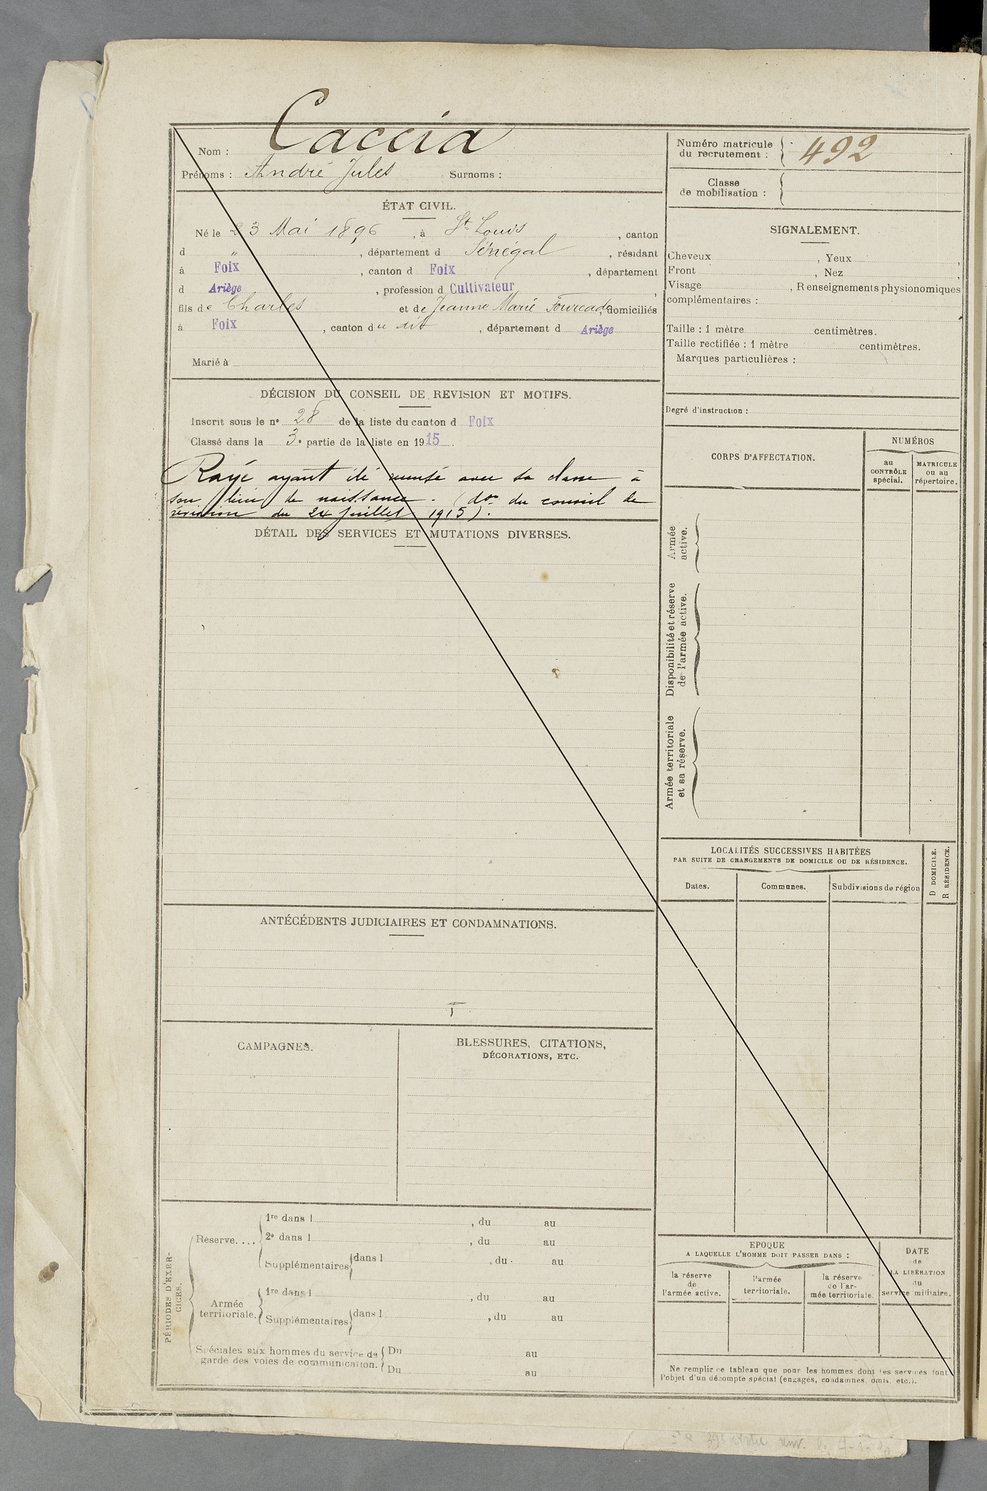 Caccia
Nom :
Prénoms : André Jules Surnoms :
Numéro matricule
du recrutement : 492
Classe
de mobilisation :
ÉTAT CIVIL.
Né le 23 Mai 1896, à St Louis, canton
d " , département d Sénégal, résidant
à Foix, canton d Foix, département
d Ariège, profession d Cultivateur,
fils de Charles et de Jeanne Marie Fourcade, domiciliés
à Foix, canton du dit, département d Ariège
Marié à
SIGNALEMENT.
Cheveux , Yeux ,
Front , Nez ,
Visage , Renseignements physionomiques
complémentaires :
Taille : 1 mètre centimètres.
Taille rectifiée : 1 mètre centimètres.
Marques particulières :
DÉCISION DU CONSEIL DE REVISION ET MOTIFS.
Inscrit sous le nº 28 de la liste du canton d Foix
Classé dans la 3e partie de la liste en 1915.
Rayé ayant été recensé avec sa classe à
son lieu de naissance. (don du conseil de
révision du 24 Juillet 1915).
Degré d'instruction :
CORPS D'AFFECTATION.
NUMÉROS
au
CONTRÔLE
spécial.
MATRICULE
ou au
répertoire.
Armée
active.
Disponibilité et réserve
de l'armée active.
Armée territoriale
et sa réserve.
DÉTAIL DES SERVICES ET MUTATIONS DIVERSES.
LOCALITÉS SUCCESSIVES HABITÉES
PAR SUITE DE CHANGEMENTS DE DOMICILE OU DE RÉSIDENCE.
Dates. Communes. Subdivisions de région
D DOMICILE.
R RÉSIDENCE.
ANTÉCÉDENTS JUDICIAIRES ET CONDAMNATIONS.
CAMPAGNES.
BLESSURES, CITATIONS,
DÉCORATIONS, ETC.
PÉRIODES D'EXER-
CICES.
Réserve....
1re dans l , du au
2e dans l , du au
Supplémentaires dans l , du au
Armée
territoriale.
1re dans l , du au
Supplémentaires dans l , du au
Spéciales aux hommes du service de
garde des voies de communication.
Du au
Du au
EPOQUE
A LAQUELLE L'HOMME DOIT PASSER DANS :
la réserve
de
l'armée active.
l'armée
territoriale.
la réserve
de l'ar-
mée territoriale.
DATE
de
LA LIBÉRATION
du
service militaire.
Ne remplir ce tableau que pour les hommes dont les services font
l'objet d'un décompte spécial (engagés, condamnés, omis, etc.).